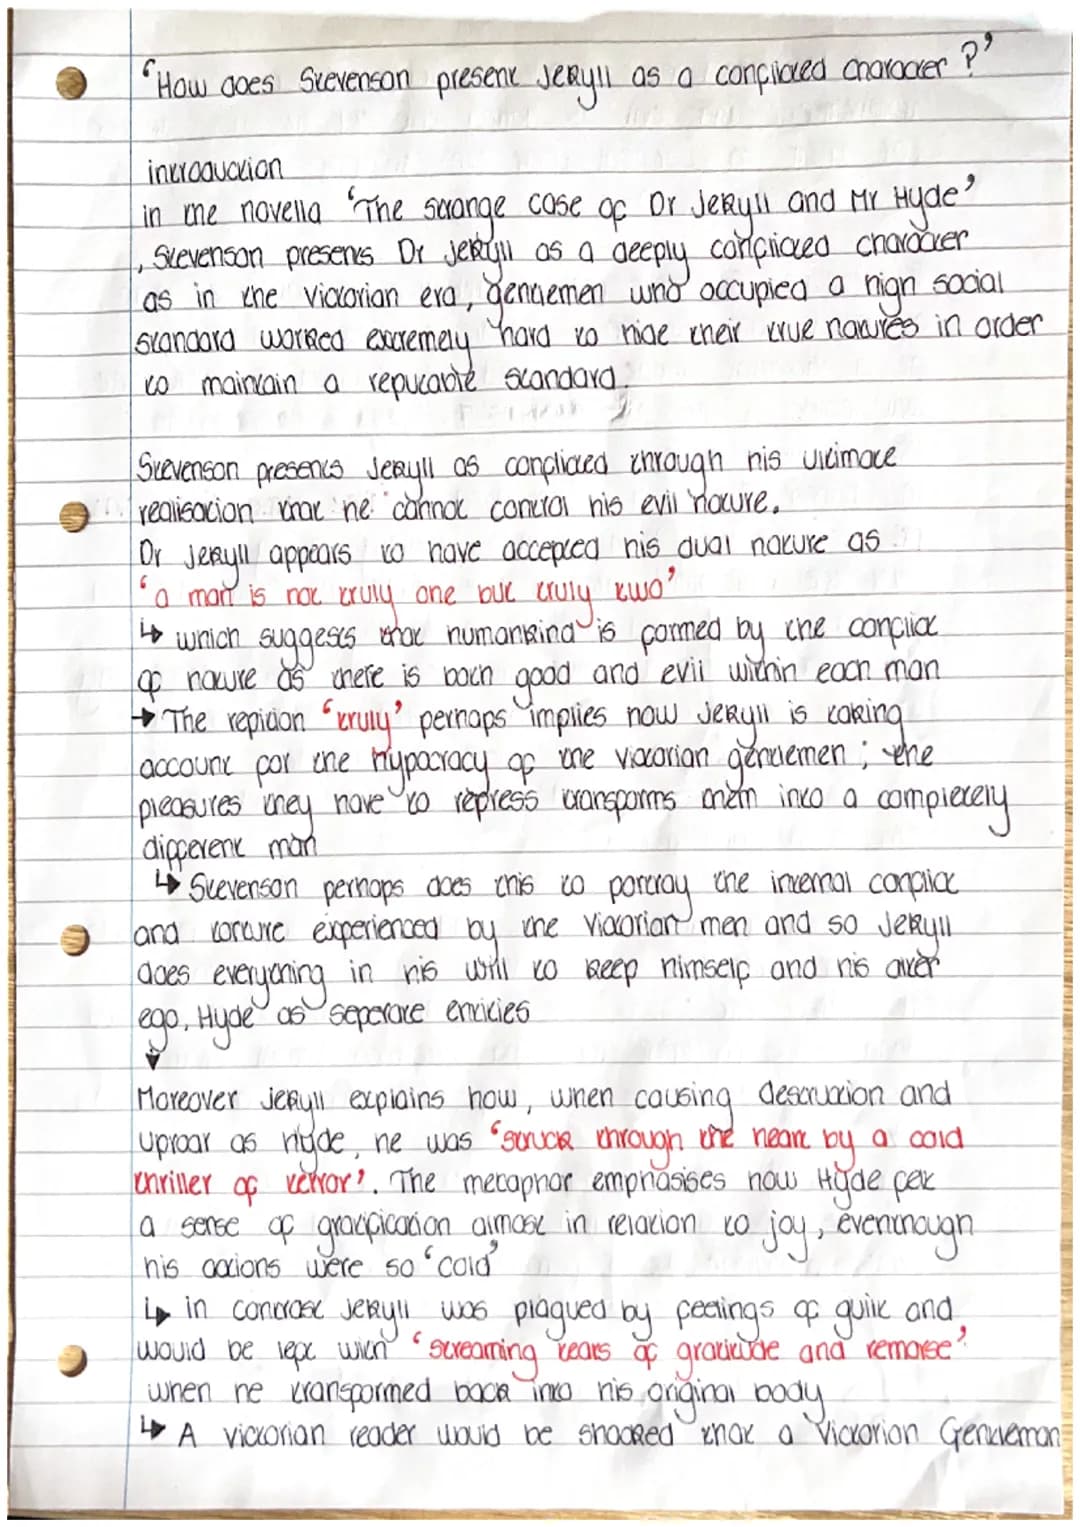 'How does Stevenson present Jekyll as a conflicted character ?'
introduction
in the novella 'The strange case of Dr Jekyll and Mr Hyde'
, Stevenson presents Dr Jekyll as a deeply conflicted character
as in the victorian era, gentlemen who occupied a high social
standard worked extremely hard to hide their true natures in order
to maintain a reputable standard.
Stevenson presents Jekyll as conflicted through his ultimate
realisation that he cannot control his evil nature.
Dr Jekyll appears to have accepted his dual nature as
'a man is not truly one but truly two'
↳ which suggests that humankind is formed by the conflict
of nature as there is both good and evil within each man
→ The repition 'truly' perhaps implies how Jekyll is taking
account for the hypocracy of the victorian gentlemen ; the
pleasures they have to repress transforms them into a completely
different man
↳ Stevenson perhaps does this to portray the internal conflict
and torture experienced by the Victorian men and so Jekyll
does everything in his will to keep himself and his alter
ego, Hyde as seperate entities
Moreover Jekyll explains how, when causing destruction and
uproar as Hyde, he was 'struck through the heart by a cold
thriller of terror'. The metaphor emphasises how Hyde felt
a sense of gratification almost in relation to joy, eventhough
his actions were so 'cold'
↳ in contrast Jekyll was plagued by feelings of guilt and
would be left with 'screaming tears of gratitude and remorse'
when he transformed back into his original body
↳ A victorian reader would be shocked that a Victorian Gentleman